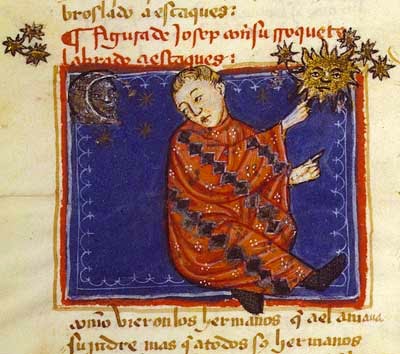 broslado a escaques:
¶ figura de Josep con su rroquete
labrado a escaques:
como vieron los hermanos q̃ a el amaua
su padre mas q̃ a todos sꝰ hermanos